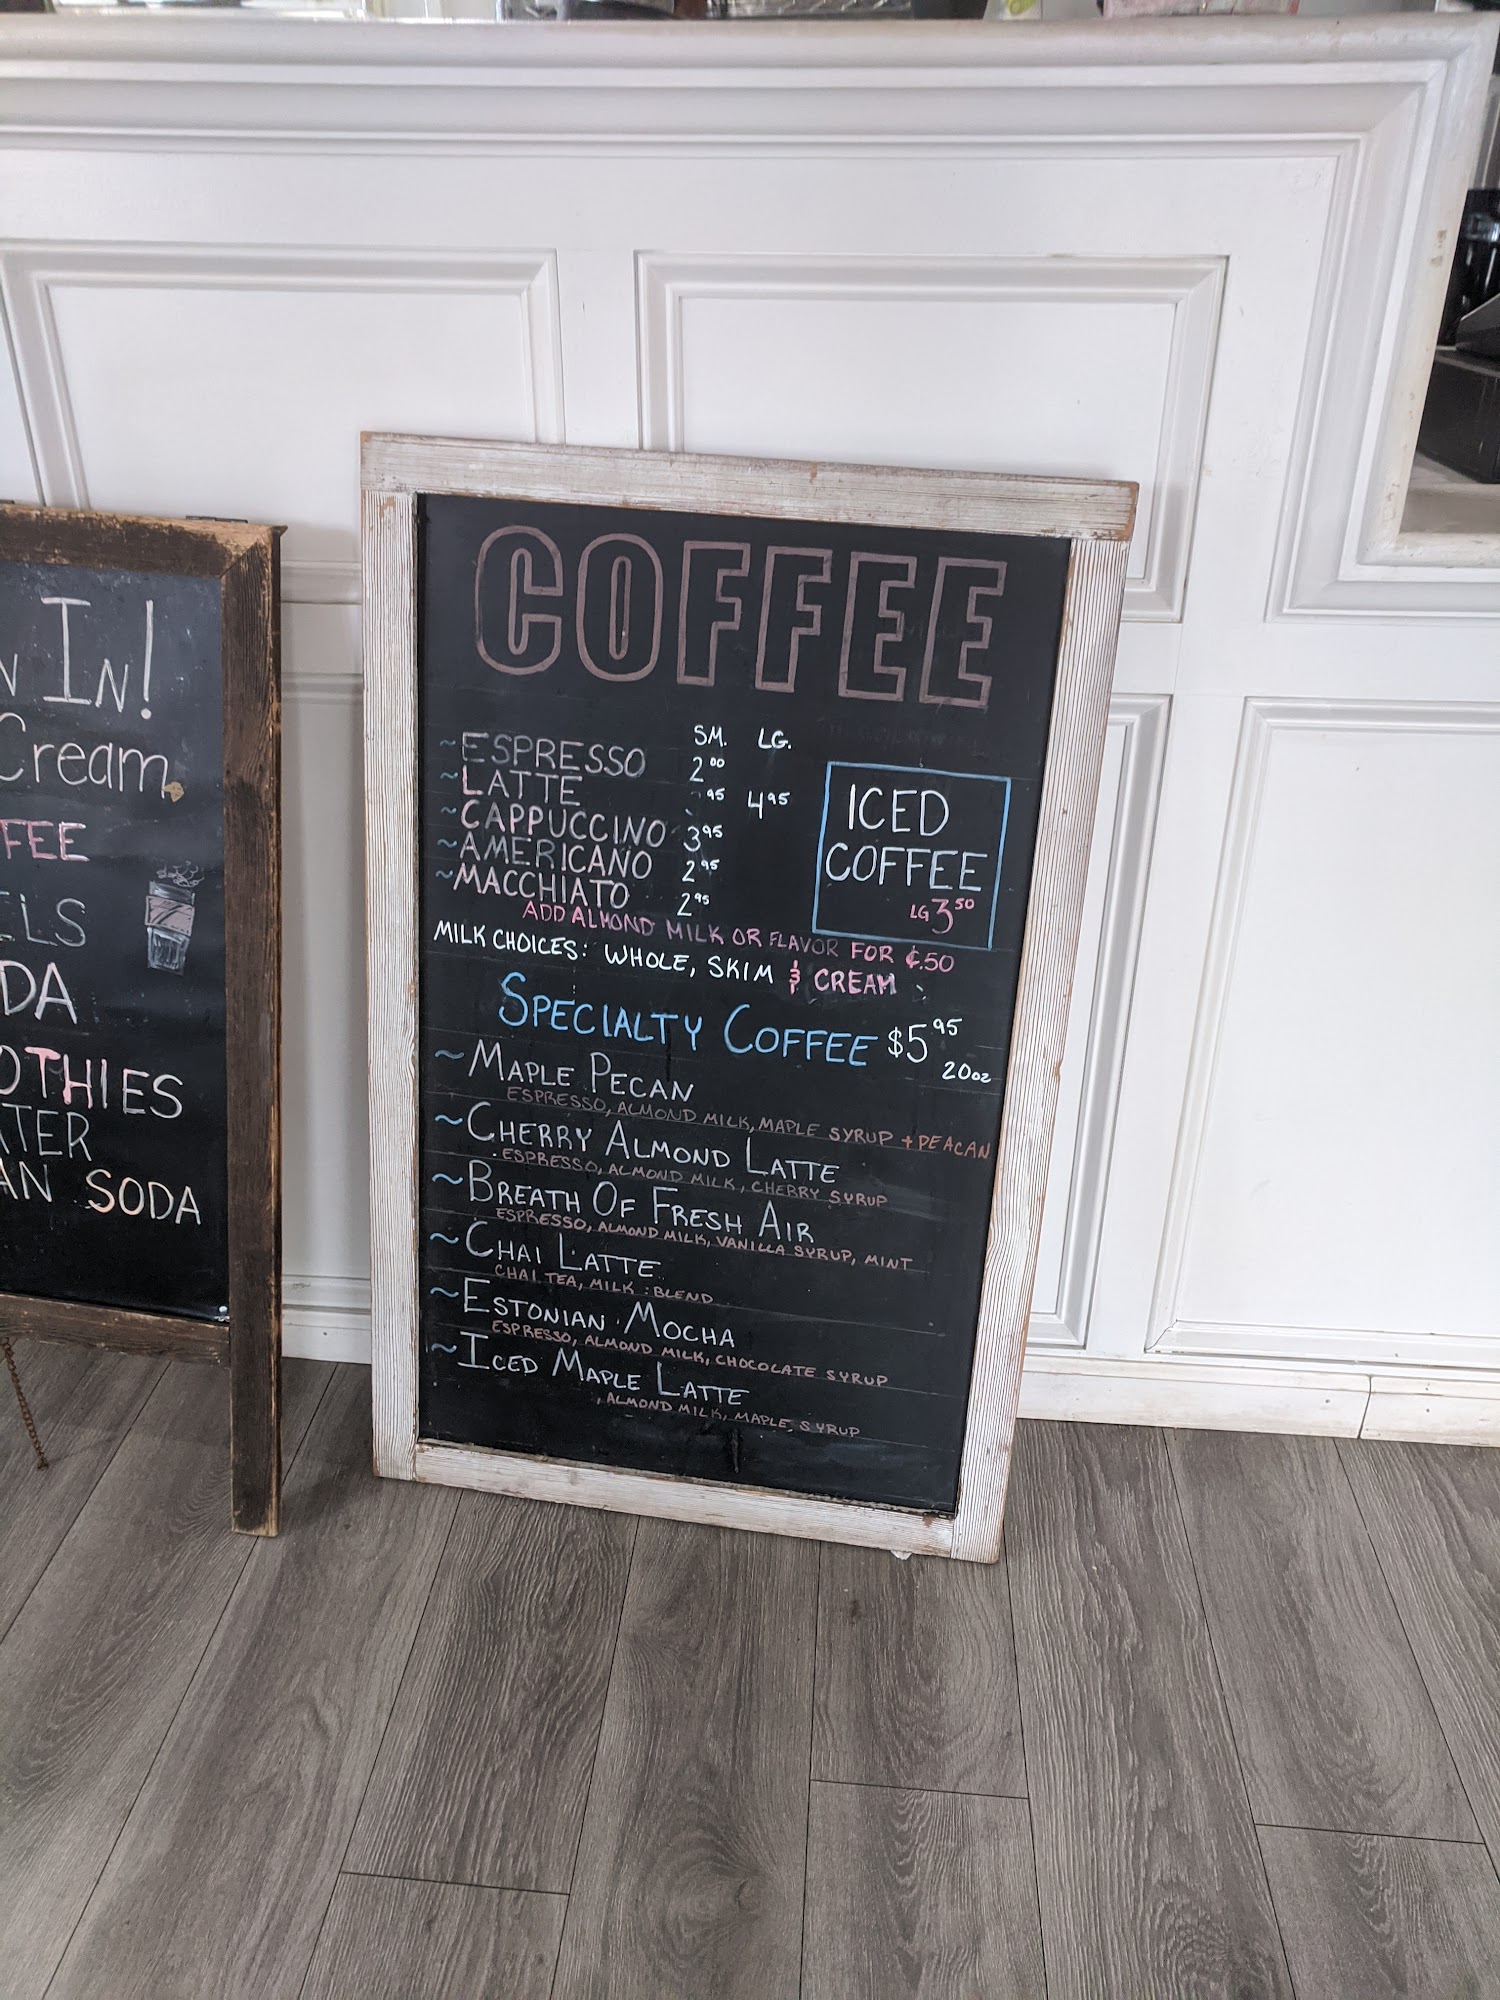 N IN!
Cream
FEE
ELS
DA
OTHIES
ATER
AN SODA
COFFEE
SM. LG.
~ESPRESSO 2.00
~LATTE .95 4.95
~CAPPUCCINO 3.95
~AMERICANO 2.95
~MACCHIATO 2.95
ICED
COFFEE
LG 3.50
ADD ALMOND MILK OR FLAVOR FOR ¢.50
MILK CHOICES: WHOLE, SKIM & CREAM
SPECIALTY COFFEE $5.95
20oz
~MAPLE PECAN
ESPRESSO, ALMOND MILK, MAPLE SYRUP + PEACAN
~CHERRY ALMOND LATTE
ESPRESSO, ALMOND MILK, CHERRY SYRUP
~BREATH OF FRESH AIR
ESPRESSO, ALMOND MILK, VANILLA SYRUP, MINT
~CHAI LATTE
CHAI TEA, MILK : BLEND
~ESTONIAN MOCHA
ESPRESSO, ALMOND MILK, CHOCOLATE SYRUP
~ICED MAPLE LATTE
, ALMOND MILK, MAPLE, SYRUP